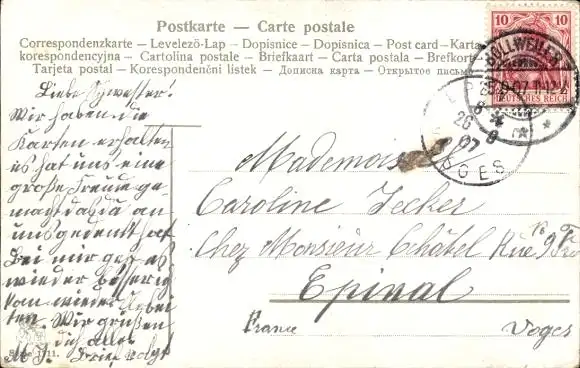 Postkarte — Carte postale
Correspondenzkarte — Levelező-Lap — Dopisnice — Dopisnica — Post card — Karta
korespondencyjna — Cartolina postale — Briefkaart — Carta postala — Brefkort
Tarjeta postal — Korespondenční listek — Дописна карта — Открытое письмо
10 10
DEUTSCHES REICH
BOLLWEILER
26
07
Liebe Schwester!
Wir haben die
Karten erhalten
es hat uns eine
große Freude ge-
macht daß du an
uns gedenkt hat
Bei mir get es
wieder
kann wieder Arbei
ten. Wir grüßen
dich alle
M J. Brief folgt
Mademoiselle
Caroline Jecker
Chez Monsieur Châtel Rue
Epinal
France Voges